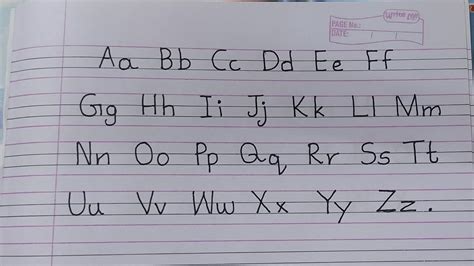 PAGE No.:
DATE: / /
Aa Bb Cc Dd Ee Ff
Gg Hh Ii Jj Kk Ll Mm
Nn Oo Pp Qq Rr Ss Tt
Uu Vv Ww Xx Yy Zz.